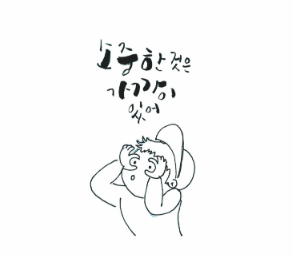 소중한 것은
가까이
있어